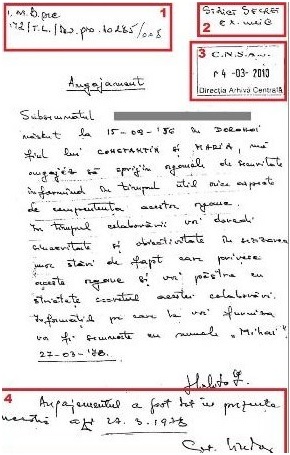 I.M.B. pre
172/T.L./Dev.pro.10285/008
1
STRICT SECRET
ex. unic
2
3
C.N.S.A.
4 -03- 2010
Direcția Arhivă Centrală
Angajament
Subsemnatul
născut la 15-09-'56 în DOROHOI
fiul lui CONSTANTIN și MARIA, mă
angajez să sprijin organele de securitate
informând în timpul util orice aspecte
de competența acestor organe.
În timpul colaborării voi dovedi
sinceritate și obiectivitate în sesizarea
unor stări de fapt care privesc
aceste organe și voi păstra cu
strictețe secretul acestei colaborări.
Informațiile pe care le voi furniza
voi fi semnate cu numele „Mihai"
27-03-'78.
4
Angajamentul a fost dat în prezența
27.3.1978